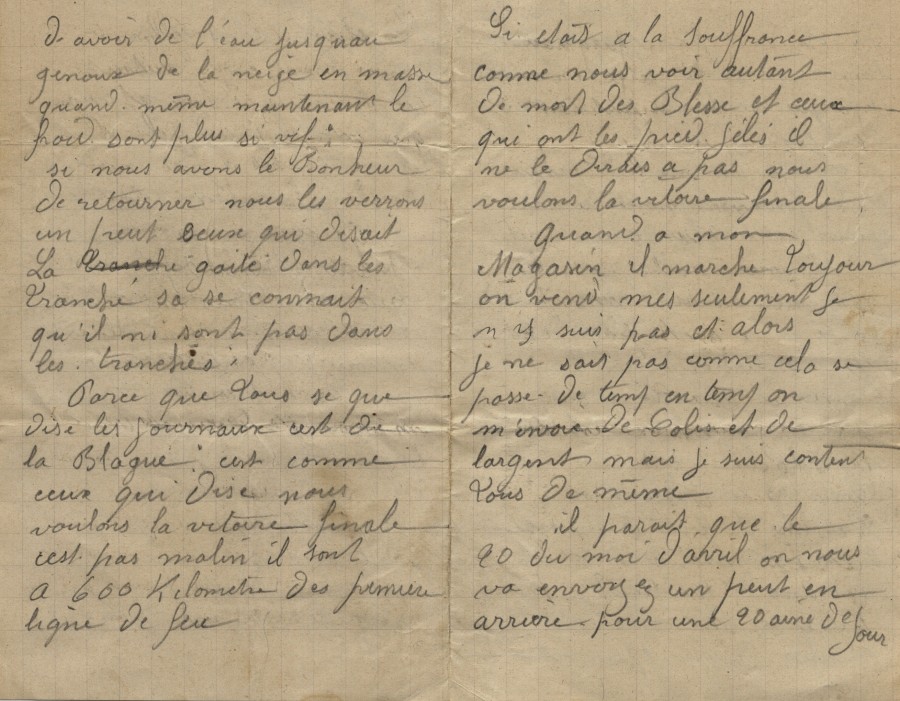 d avoir de l'eau jusquau
genoux de la neige en masse
quand même maintenant le
froid sont plus si vif.
si nous avons le Bonheur
de retourner nous les verrons
un peut ceux qui disait
La Tranche gaité dans les
Tranché sa se connait
qu'il ni sont pas dans
les tranchés.
Parce que Tous se que
dise les journaux cest die
la Blague. cest comme
ceux qui dise nous
voulons la vitoire finale
cest pas malin il sont
a 600 Kilometre des premiere
ligne de feu
Si etais a la Souffrance
comme nous voir autant
de mort des Blesse et ceux
qui ont les pied gélés il
ne le Dirais a pas nous
voulons la vitoire finale
Quand a mon
Magasin il marche Toujour
on vend mes seulement je
n y suis pas et alors
je ne sait pas comme cela se
passe. de temp en temp on
m'envoie de Colis et de
largent mais je suis content
Tous de même
il parait que le
20 du moi d'avril on nous
va envoyez un peut en
arriere pour une 20aine de
jour